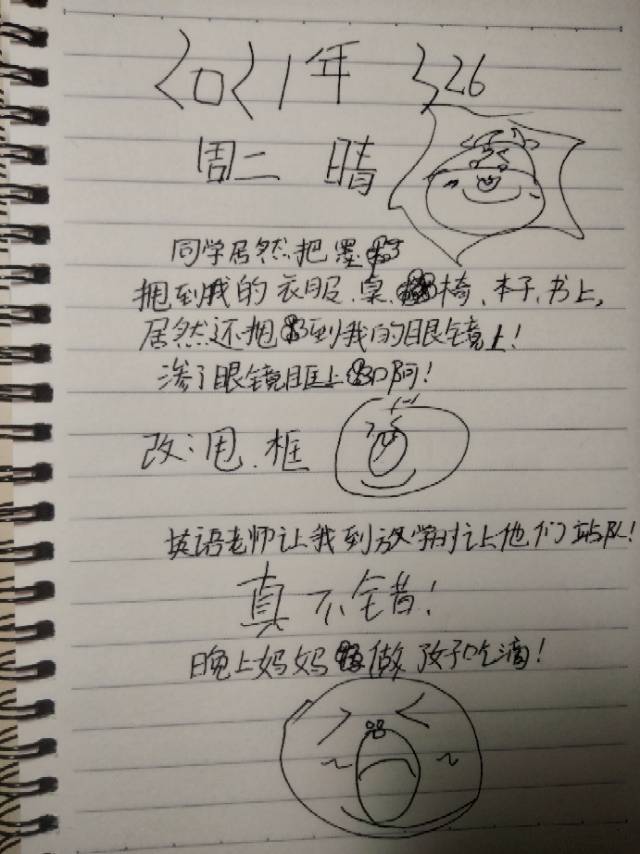 2021年 326
周二 晴
同学居然把墨
捆到我的衣服、桌、椅、本子、书上,
居然还捆到我的眼镜上!
渗了眼镜眶上 啊!
改:甩、框
英语老师让我到放学时让他们站队!
真不错!
晚上妈妈做 吃滴!